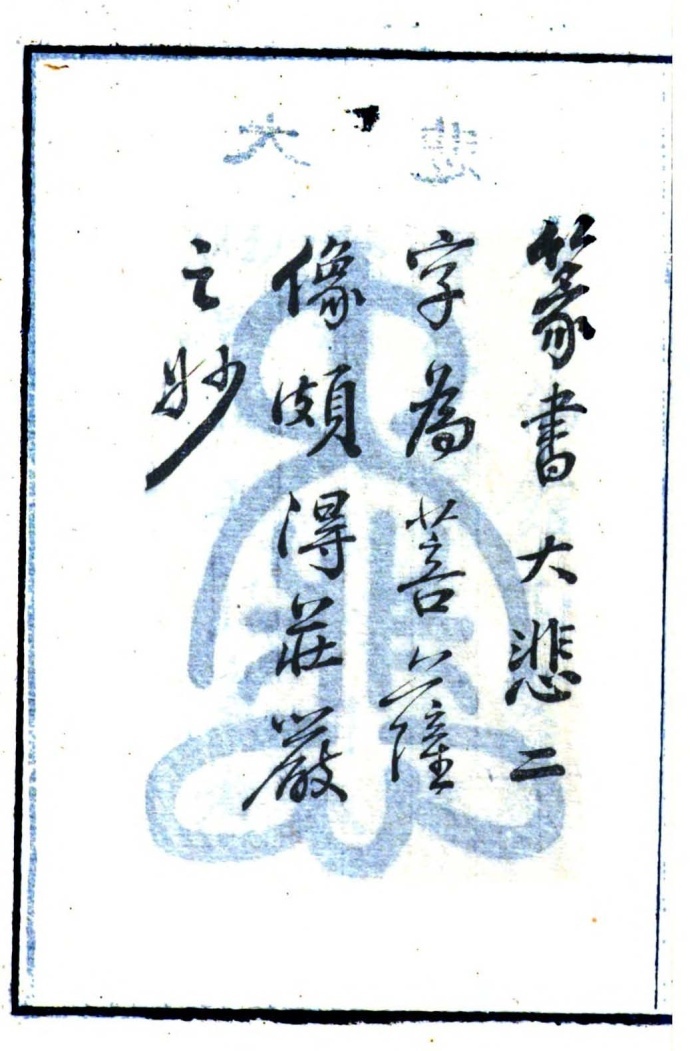 大悲
篆書大悲二
字為菩薩
像頗得莊嚴
之妙